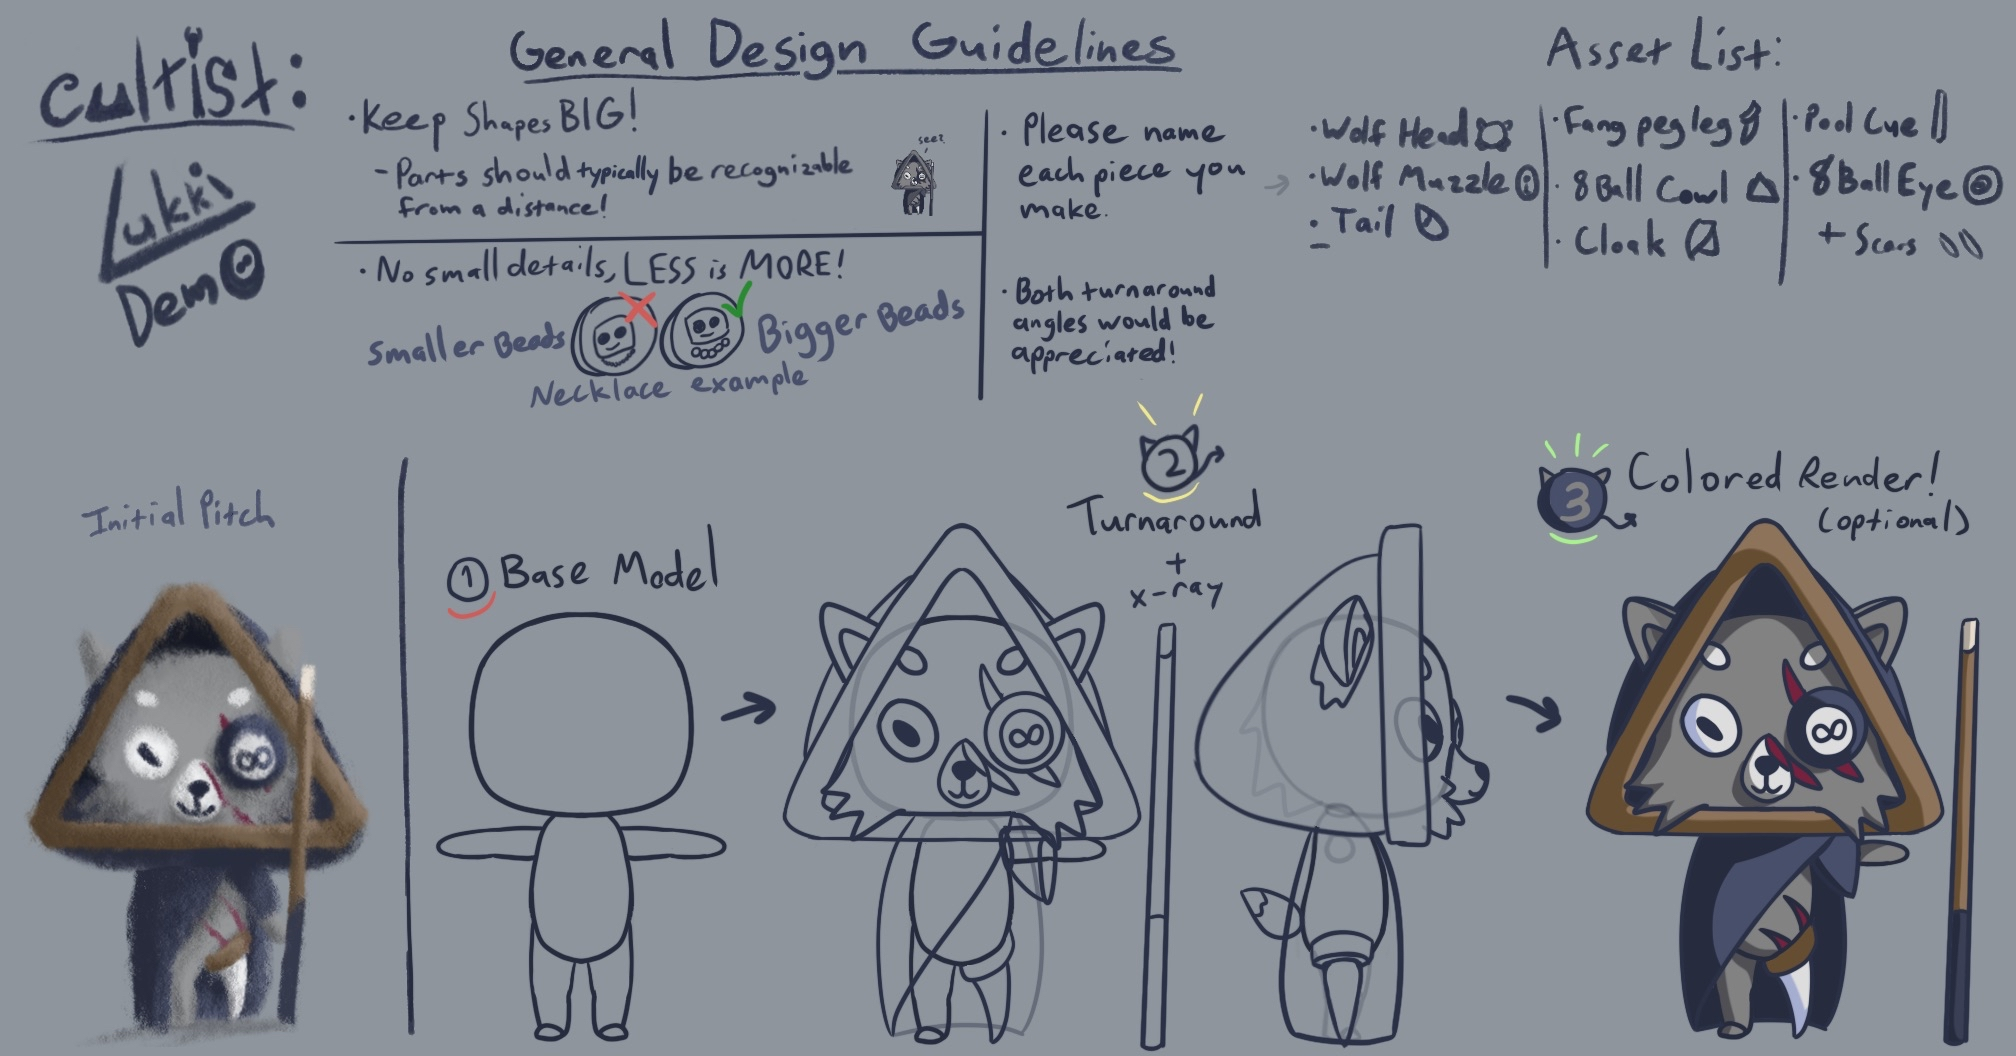 Cultist:
Lukki
Demo
General Design Guidelines
• Keep Shapes BIG!
- Parts should typically be recognizable
from a distance!
see?
• No small details, LESS is MORE!
Smaller Beads
Bigger Beads
Necklace example
• Please name
each piece you
make.
• Both turnaround
angles would be
appreciated!
Asset List:
• Wolf Head
• Wolf Muzzle
• Tail
• Fang peg leg
• 8 Ball Cowl
• Cloak
• Pool Cue
• 8 Ball Eye
+ Scars
Initial Pitch
1 Base Model
2
Turnaround
+
x-ray
3 Colored Render!
(optional)